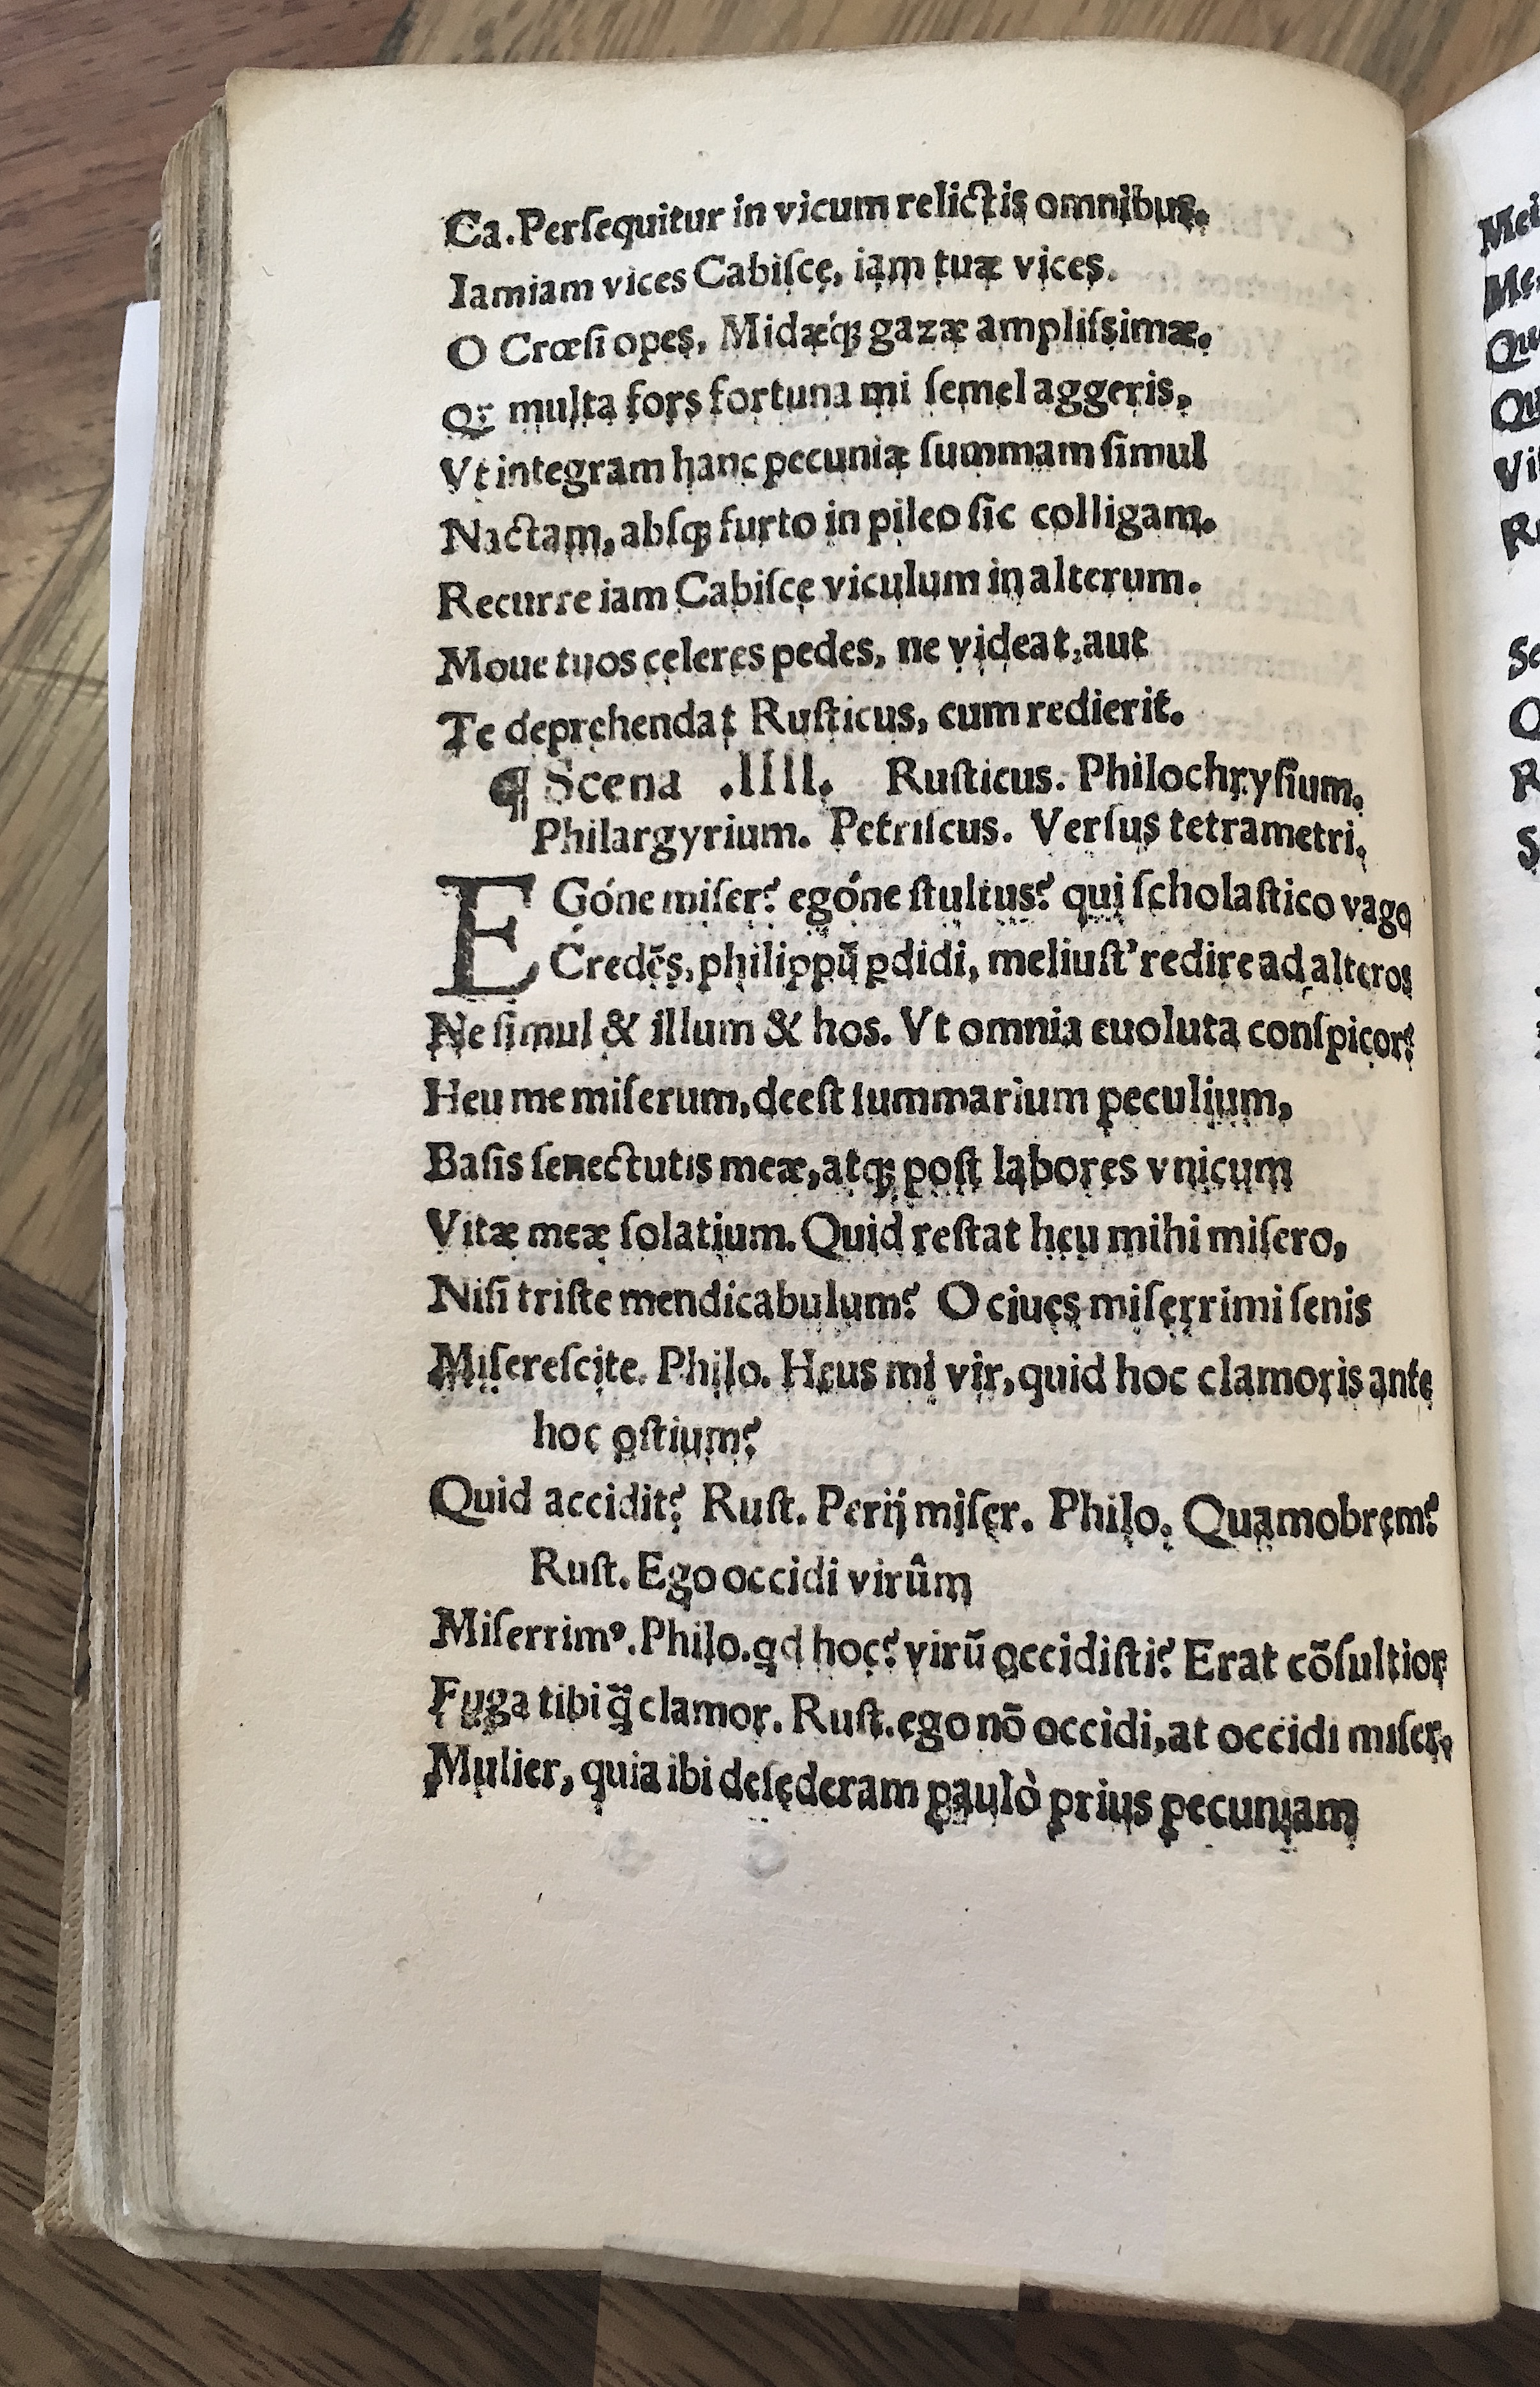 Ca. Perſequitur in vicum relictis omnibus.
Iamiam vices Cabiſce, iam tuæ vices.
O Crœſi opes, Midæq́ꝫ gazæ ampliſsimæ.
multa fors fortuna mi ſemel aggeris,
Vt integram hanc pecuniæ ſummam ſimul
Nactam, abſqꝫ furto in pileo ſic colligam.
Recurre iam Cabiſce viculum in alterum.
Moue tuos celeres pedes, ne videat, aut
Te deprehendat Ruſticus, cum redierit.
¶ Scena .IIII. Ruſticus. Philochryſium.
Philargyrium. Petriſcus. Verſus tetrametri.
EGóne miſer? egóne ſtultus? qui ſcholaſtico vago
Credẽs, philippũ ꝑdidi, meliuſt' redire ad alteros
Ne ſimul & illum & hos. Vt omnia euoluta conſpicor?
Heu me miſerum, deeſt ſummarium peculium,
Baſis ſenectutis meæ, atqꝫ poſt labores vnicum
Vitæ meæ ſolatium. Quid reſtat heu mihi miſero,
Niſi triſte mendicabulum? O ciues miſerrimi ſenis
Miſereſcite. Philo. Heus mi vir, quid hoc clamoris ante
hoc oſtium?
Quid accidit? Ruſt. Perij miſer. Philo. Quamobrem?
Ruſt. Ego occidi virûm
Miſerrimꝰ. Philo. qd hoc? virũ occidiſti? Erat cõſultior
Fuga tibi q̃ clamor. Ruſt. ego nõ occidi, at occidi miſer,
Mulier, quia ibi deſederam paulò prius pecuniam